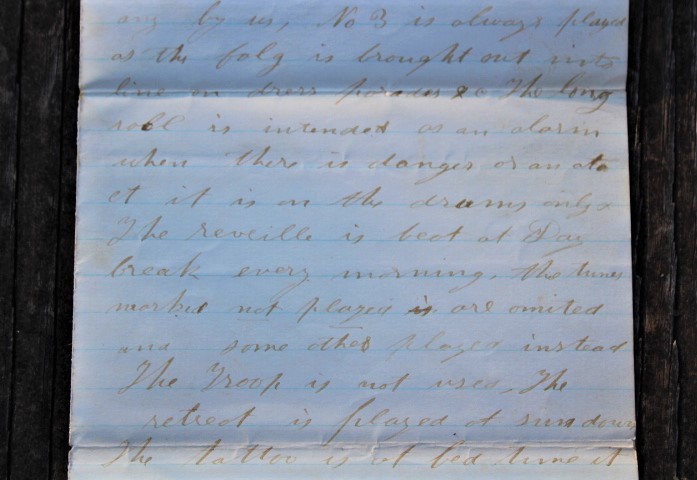 any by us, No 3 is always played
as the folg is brought out into
line on dress parades &c The long
roll is intended as an alarm
when there is danger or an
it is on the drums only
The reveille is beat at Day
break every morning, the tunes
marked not played is are omited
and some other played instead
The Troop is not used, The
retreat is played at sundown
The tattoo is at bed time it